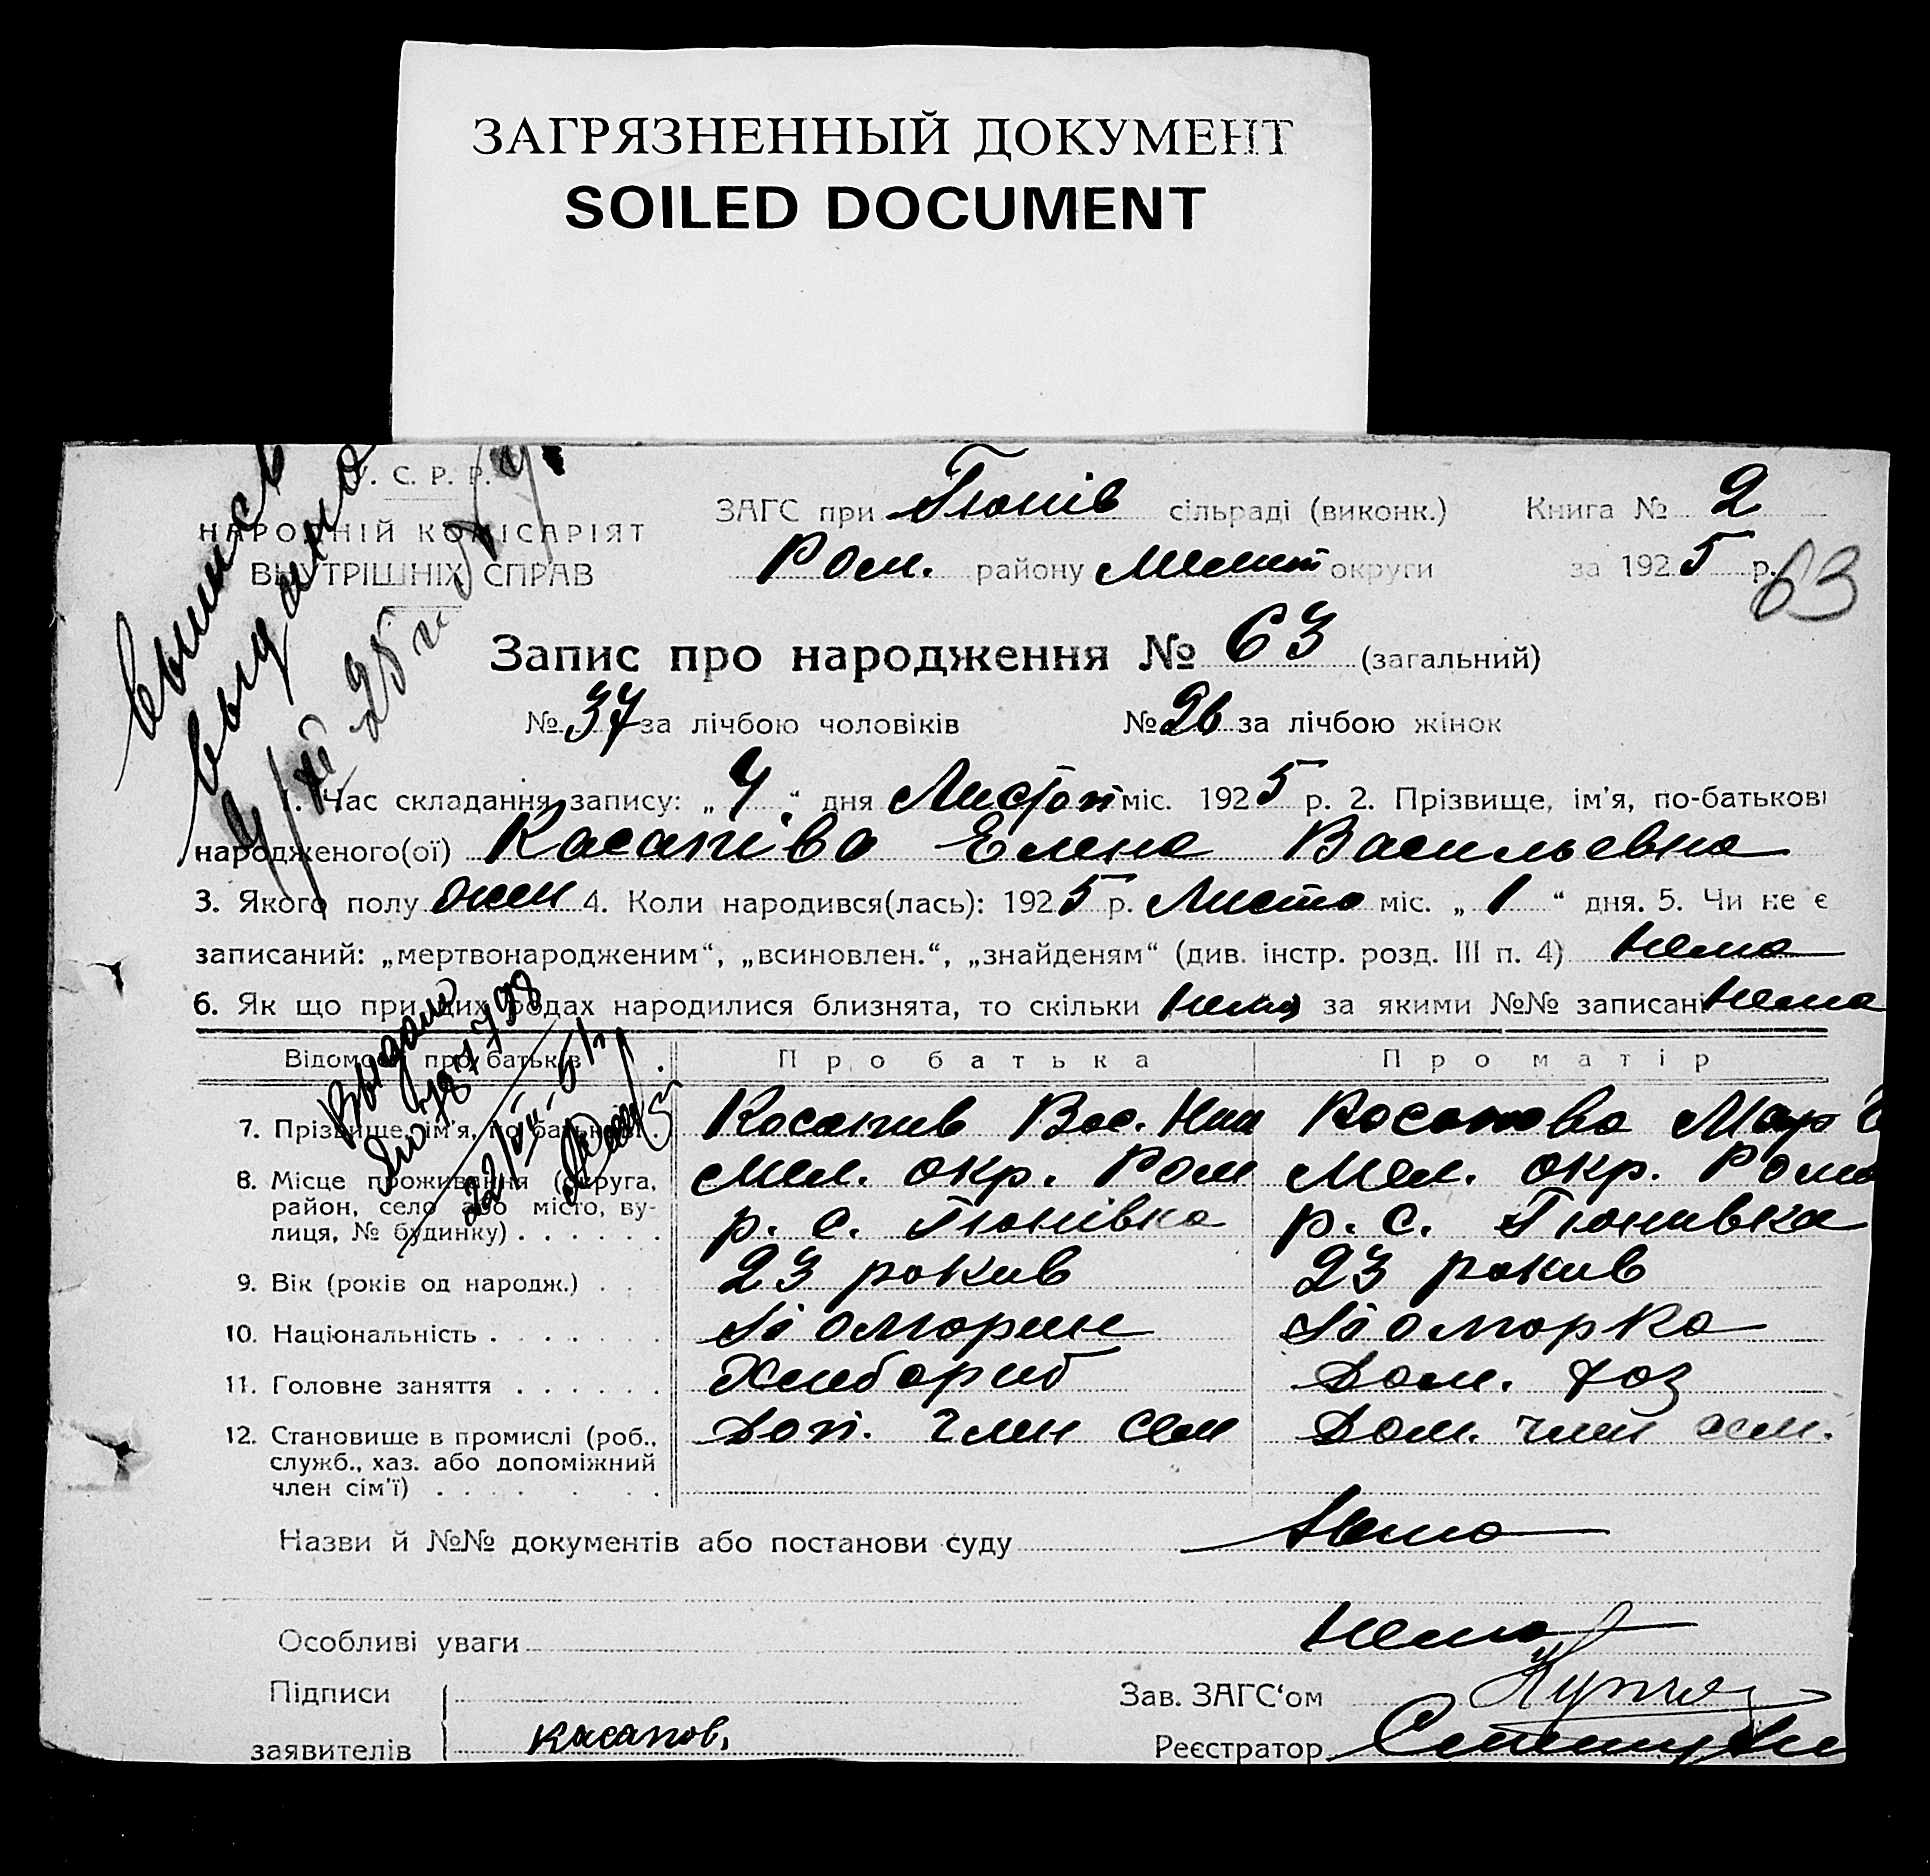 ЗАГРЯЗНЕННЫЙ ДОКУМЕНТ
SOILED DOCUMENT
У. С. Р. Р.
НАРОДНІЙ КОМІСАРІЯТ
ВНУТРІШНІХ СПРАВ
ЗАГС при Гюнів сільраді (виконк.) Книга № 2
Ром. району Мелит округи за 1925 р.
63
Запис про народження № 63 (загальний)
№ 37 за лічбою чоловіків № 26 за лічбою жінок
1. Час складання запису: „4“ дня Листоп міс. 1925 р. 2. Прізвище, ім'я, по-батькові
народженого(ої) Касапіва Елена Васильевна
3. Якого полу жен 4. Коли народився(лась): 1925 р. Листо міс. „1“ дня. 5. Чи не є
записаний: „мертвонародженим“, „всиновлен.“, „знайденям“ (див. інстр. розд. III п. 4) Нема
6. Як що при цих родах народилися близнята, то скільки Нема за якими №№ записані Нема
Відомості про батьків Про батька Про матір
7. Прізвище, ім'я, по батькові Косапив Вас. Косапова Мар
8. Місце проживання (округа, Мел. окр. Ром Мел. окр. Ром
район, село або місто, ву- р. с. Гюнівка р. с. Гюнивка
лиця, № будинку)
9. Вік (років од народж.) 23 рокив 23 рокив
10. Національність
11. Головне заняття Хлибориб Дом. хоз
12. Становище в промислі (роб., Доп. член сем Дом. член сем.
служб., хаз. або допоміжний
член сім'ї)
Назви й №№ документів або постанови суду Нема
Особливі уваги Нема
Підписи Зав. ЗАГС'ом
заявителів Касапов, Реєстратор